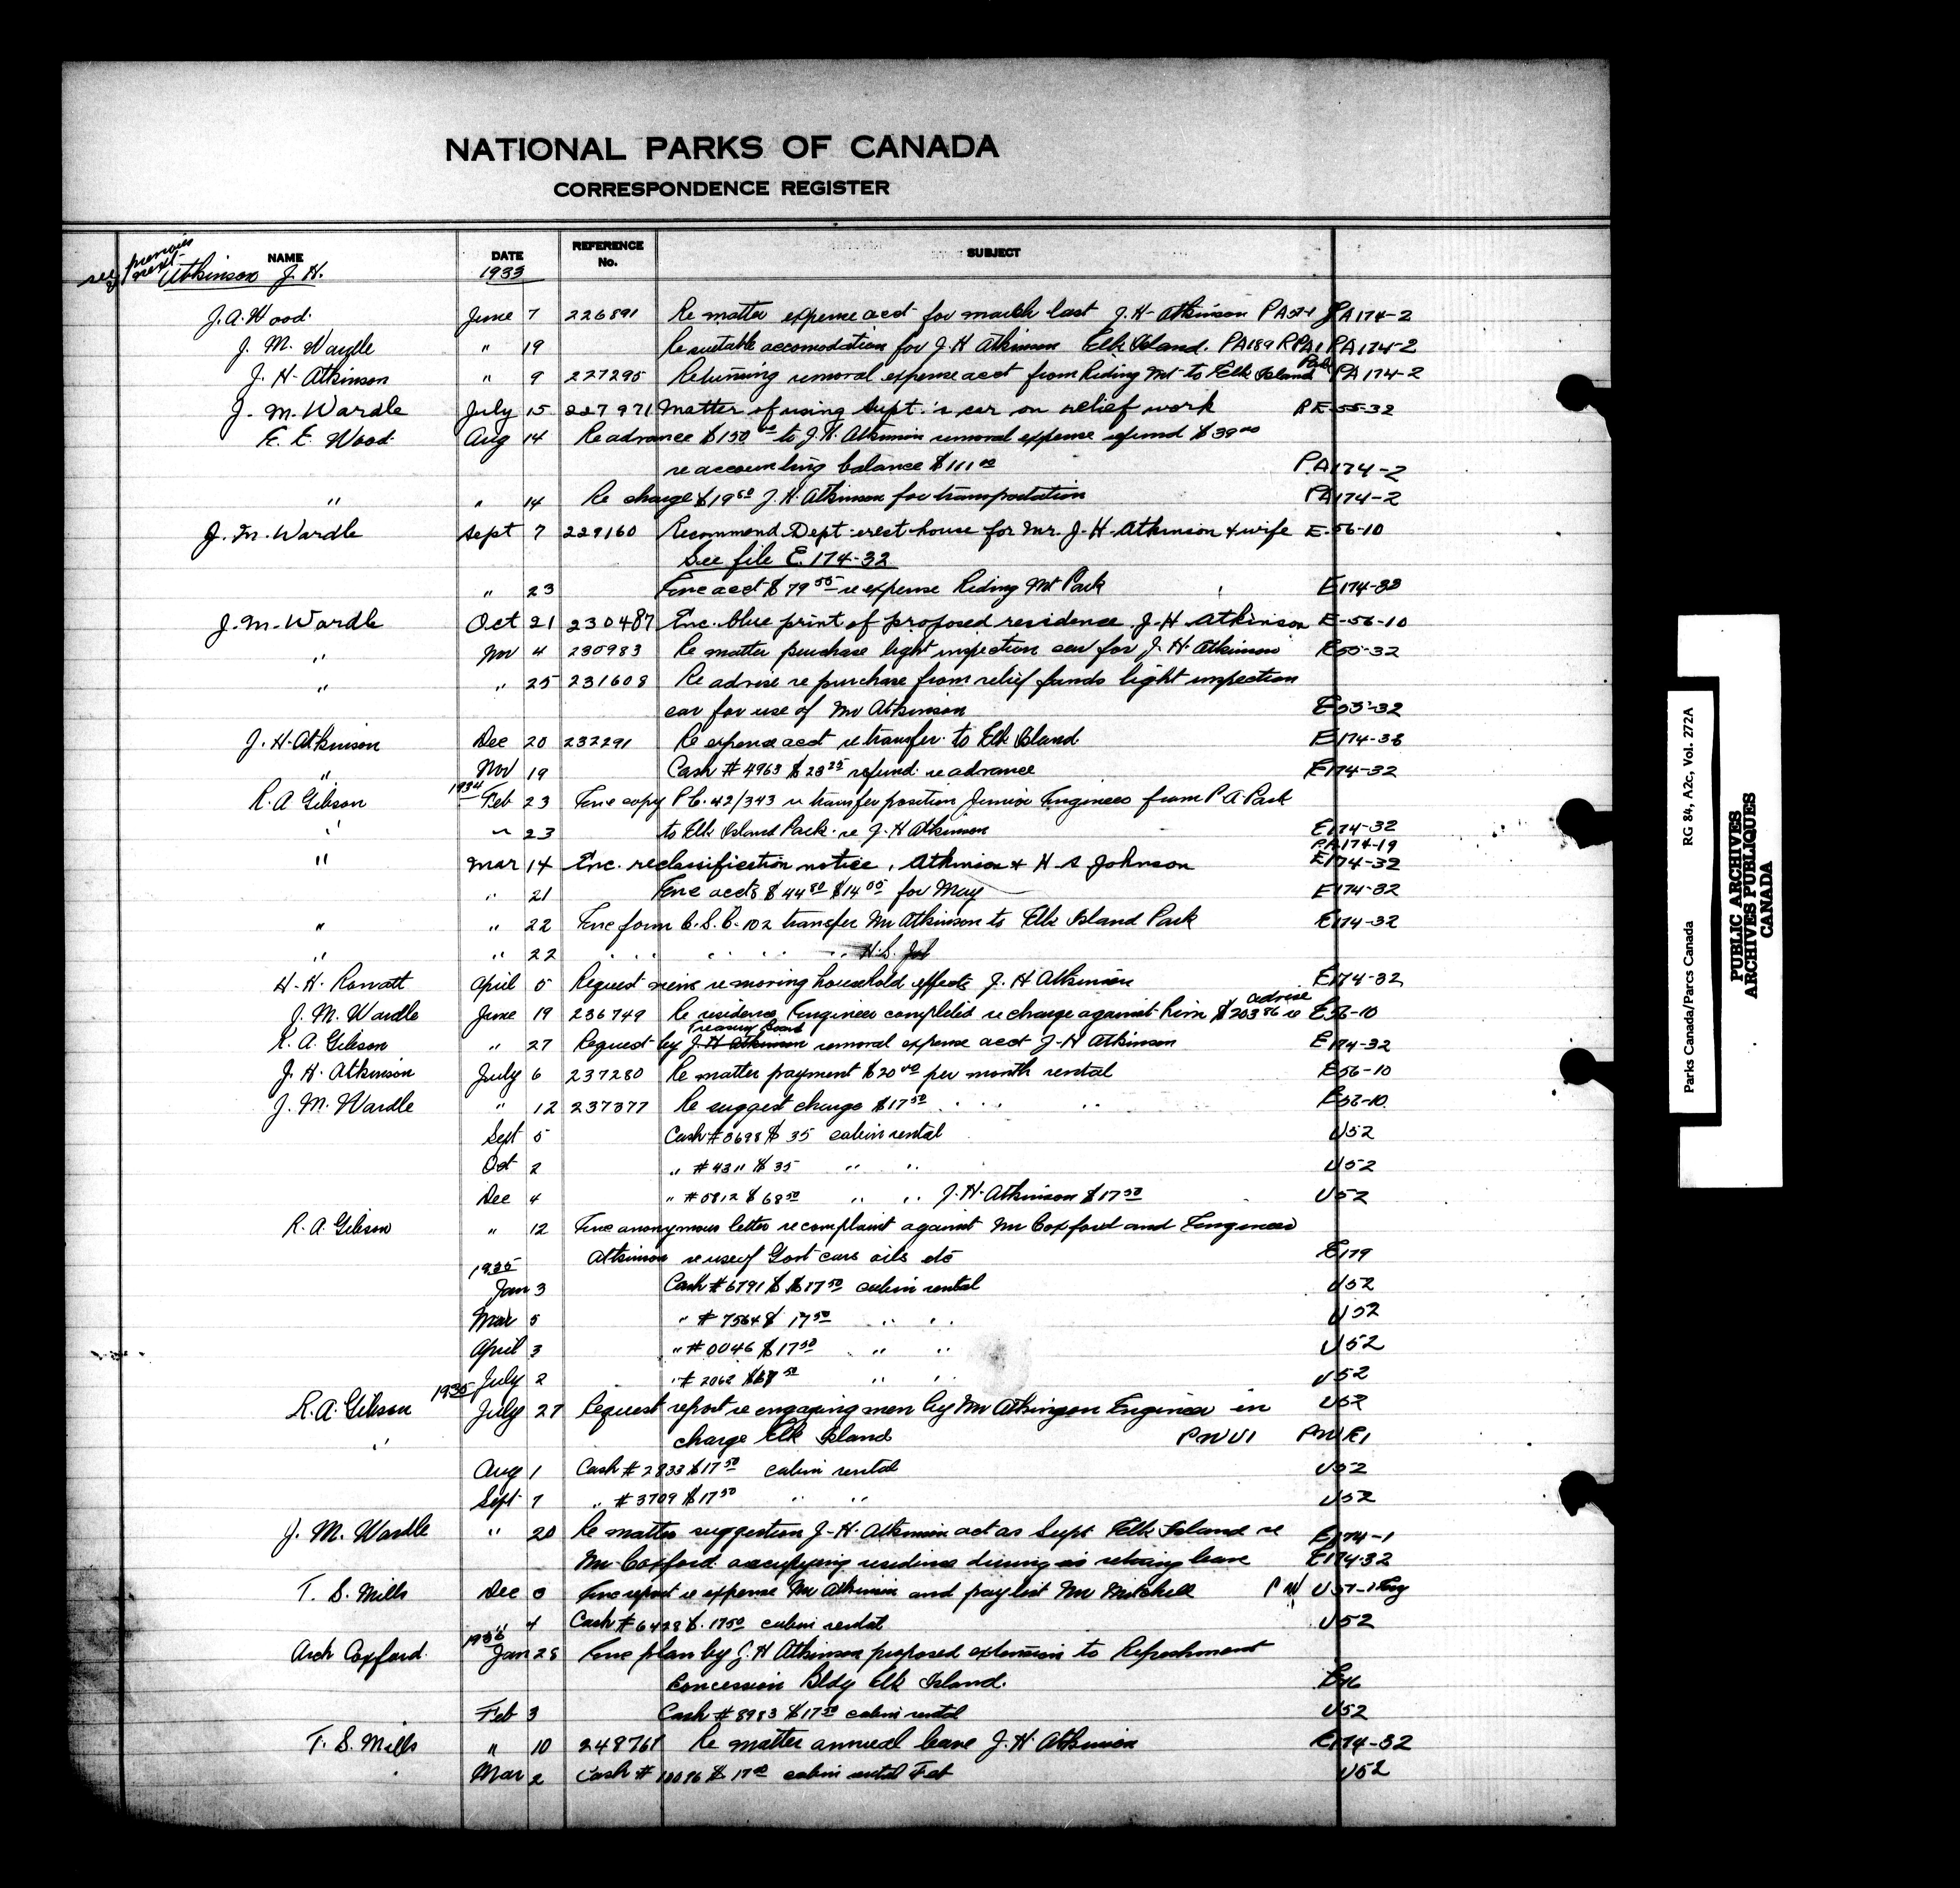 NATIONAL PARKS OF CANADA
CORRESPONDENCE REGISTER
NAME DATE REFERENCE No. SUBJECT
see previous Atkinson J. H. 1933
J.A. Wood. June 7 226891 Re matter expense acct for march last J.H. Atkinson PA174-2
J. M. Wardle " 19 Re suitable accomodation for J.H Atkinson Elk Island. PA189 PA174-2
J. H. Atkinson " 9 227295 Returning removal expense acct from Riding Mt to Elk Island Park PA 174-2
J. M. Wardle July 15 227971 Matter of using Supt.'s car on relief work E-55-32
Wood Aug 14 Re advance $150 00 to J.H. Atkinson removal expense refund $39 00
re accounting balance $111 00 P.A174-2
" " 14 Re charge $19 60 J.H. Atkinson for transportation PA174-2
J. M. Wardle Sept 7 229160 Recommend Dept erect house for Mr. J-H-Atkinson & wife E-56-10
See file E.174-32
" 23 Enc acct $79 55 re expense Riding Mt Park
J. M. Wardle Oct 21 230487 Enc. blue print of proposed residence J-H Atkinson E-56-10
" Nov 4 230983 Re matter purchase light inspection car for J. H. Atkinson E55-32
" " 25 231608 Re advise re purchase from relief funds light inspection
car for use of Mr Atkinson E55-32
J. H. Atkinson Dec 20 232291 Re expense acct re transfer to Elk Island
" Nov 19 Cash # 4963 $23 25 refund re advance E174-32
R. A Gibson 1934 Feb 23 Enc copy P.C. 42/343 re transfer position Junior Engineer from P.A. Park
" " 23 to Elk Island Park re J-H Atkinson E174-32
PA174-19
" Mar 14 Enc. reclassification notice, Atkinson & H S Johnson E174-32
" 21 Enc accts $44 80 $14 00 for May E174-32
" " 22 Enc form C.S.C-102 transfer Mr Atkinson to Elk Island Park E174-32
" " 22 " " " " " " H.S.
H. H. Rowatt April 5 Request re moving household effects J. H Atkinson E174-32
J. M. Wardle June 19 236749 Re residence Engineer completed re charge against him $203 86 re advise E56-10
R. A. Gibson " 27 Request by J. H Atkinson Treasury Board removal expense acct J-H Atkinson E174-32
J. H. Atkinson July 6 237280 Re matter payment $20 00 per month rental E56-10
J. M. Wardle " 12 237377 Re suggest charge $17 50 " " " E56-10
Sept 5 Cash # 3698 $ 35 cabin rental U52
Oct 2 " # 4311 $ 35 " " U52
Dec 4 " # 5812 $ 68 50 " " J-H-Atkinson $17 50 U52
R. A. Gibson " 12 Enc anonymous letter re complaint against Mr Coxford and Engineer
Atkinson re use of Govt cars oils etc E179
1935
Jan 3 Cash # 6791 $ $17 50 cabin rental U52
Mar 5 " # 7564 $ 17 50 " " U52
April 3 " # 0046 $17 50 " " U52
July 2 " # 2062 " " U52
R. A. Gibson 1935 July 27 Request report re engaging men by Mr Atkinson Engineer in U52
" charge Elk Island PWU1 PWE1
Aug 1 Cash # 2833 $17 50 cabin rental U52
Sept 7 " # 3709 $17 50 " " U52
J. M. Wardle " 20 Re matter suggestion J-H. Atkinson act as Supt Elk Island re E174-1
Mr Coxford occupying residence during retiring leave E174-32
T. S. Mills Dec Enc report re expense Mr Atkinson and pay list Mr Mitchell
" 4 Cash # 6428 $ 17 50 cabin rental U52
Arch Coxford. 1936 Jan 28 Enc plan by J. H Atkinson proposed extension to Refreshment
Concession Bldg Elk Island.
Feb 3 Cash # 8983 $17 50 cabin rental U52
T. S. Mills " 10 248761 Re matter annual leave J. H Atkinson E174-32
Mar 2 Cash # $ 17 50 cabin rental Feb U52
Parks Canada/Parcs Canada RG 84, A2c, Vol. 272A
PUBLIC ARCHIVES
ARCHIVES PUBLIQUES
CANADA